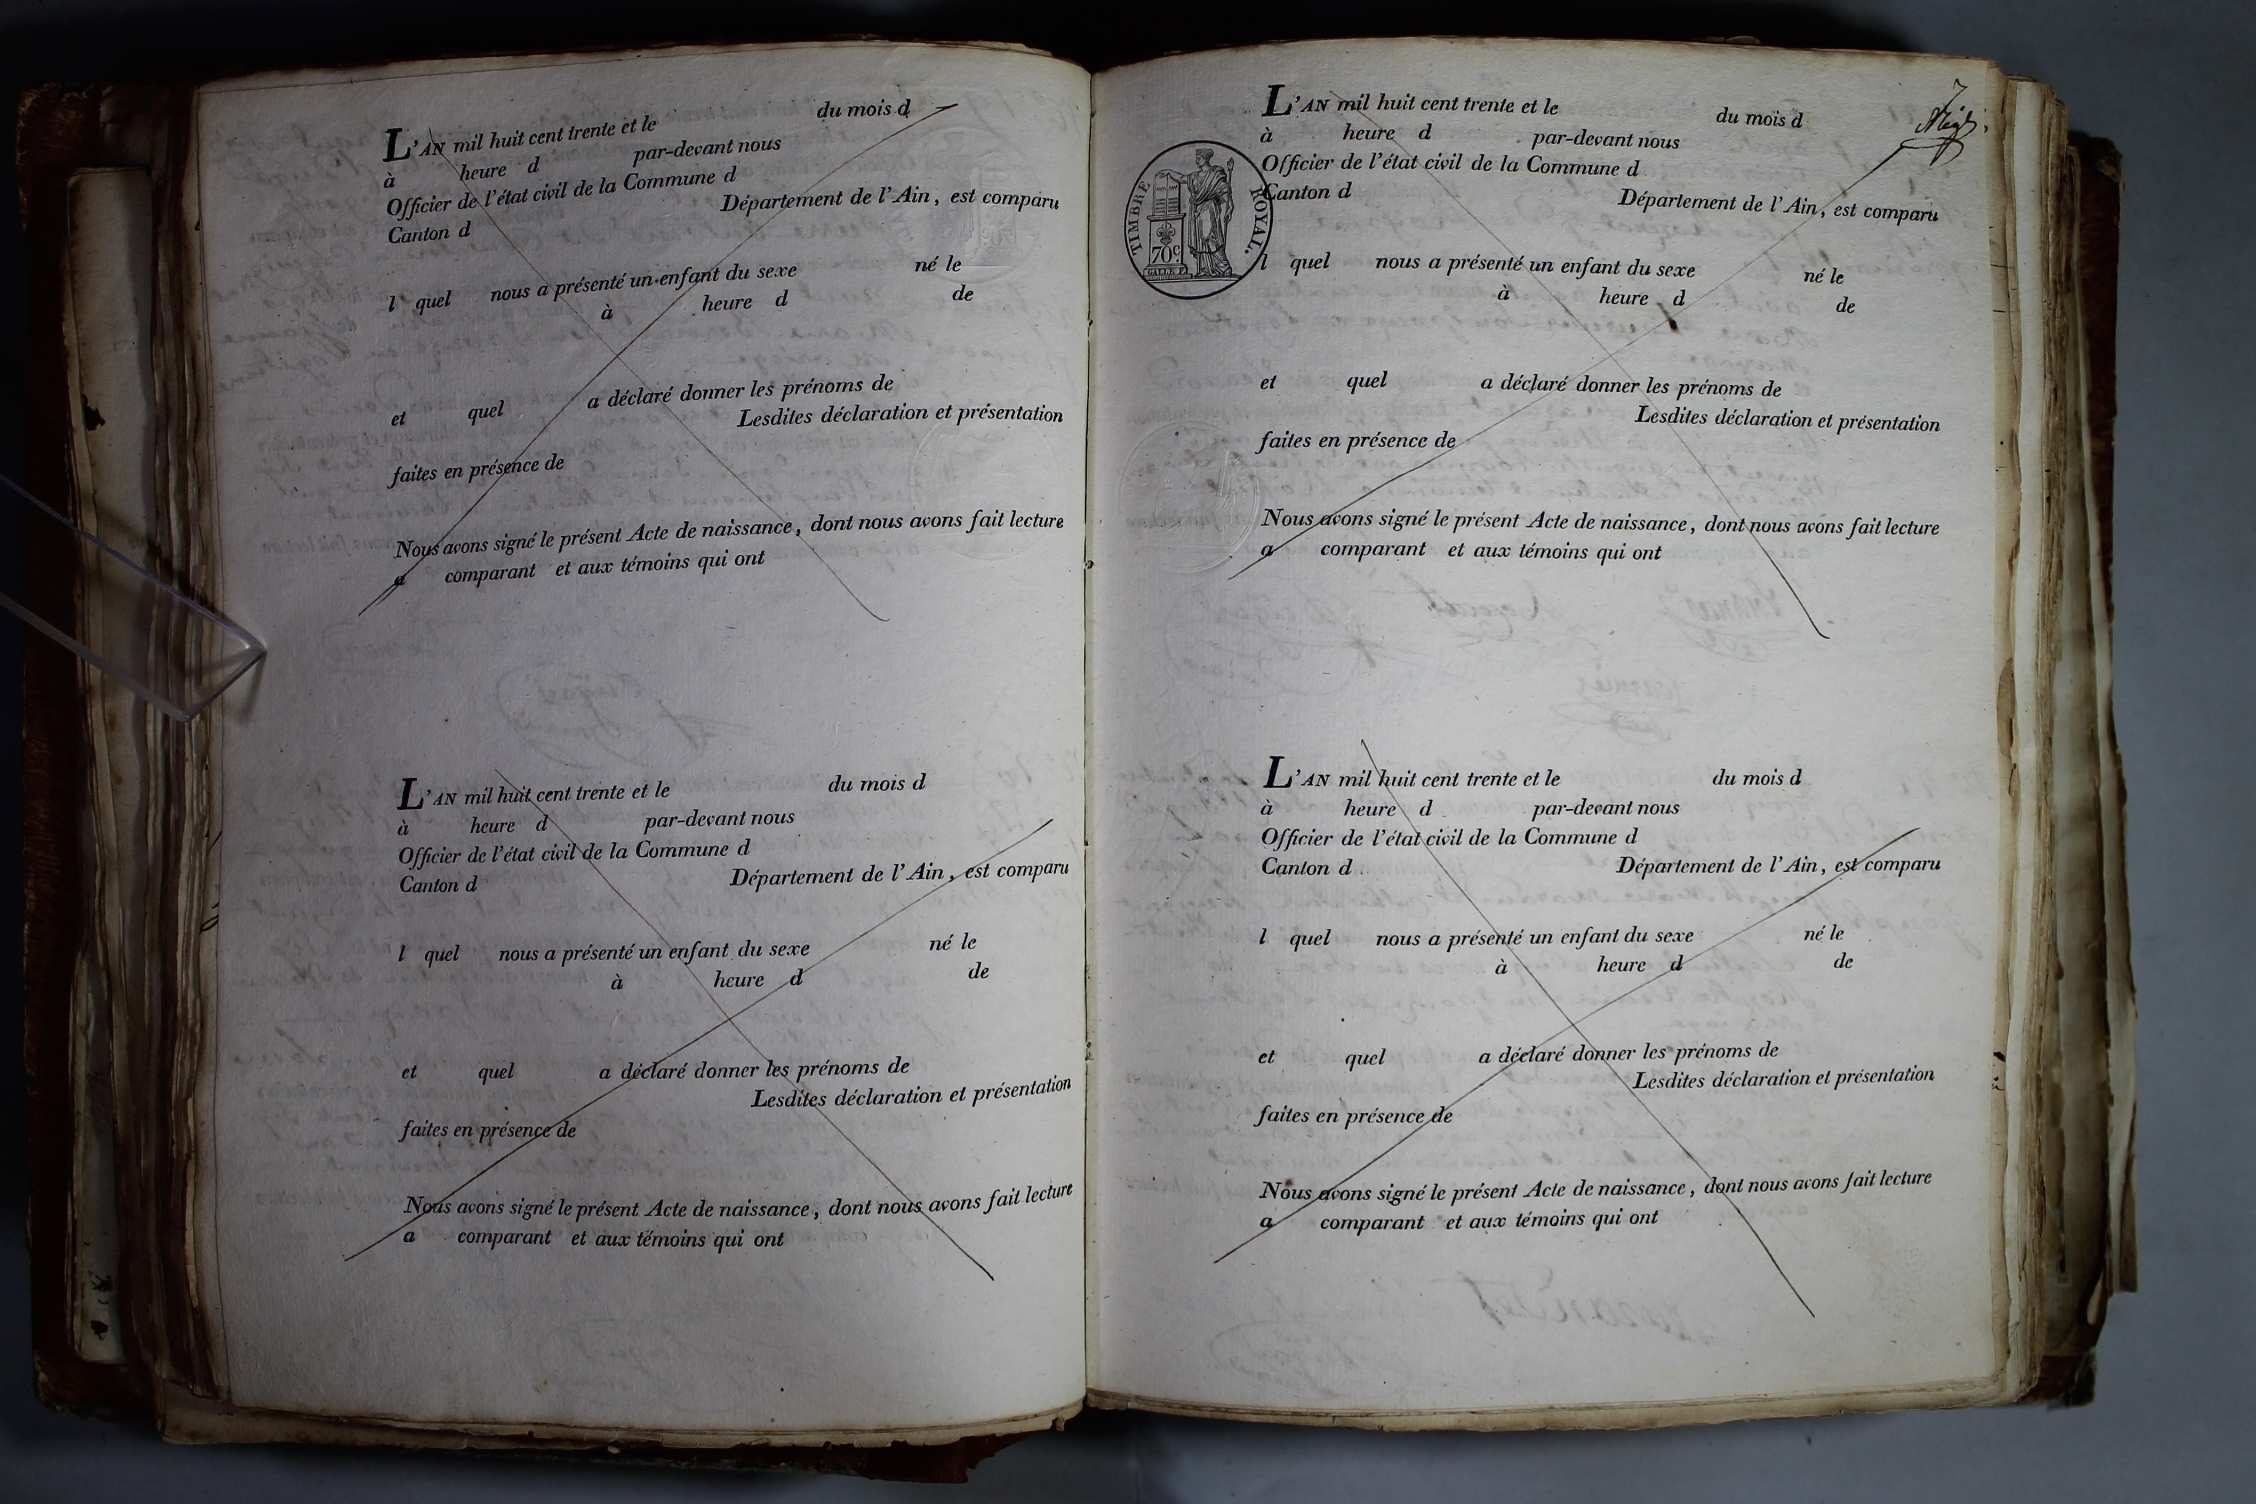 L'AN mil huit cent trente et le du mois d
à heure d par-devant nous
Officier de l'état civil de la Commune d
Canton d Département de l'Ain, est comparu
l quel nous a présenté un enfant du sexe né le
à heure d de
et quel a déclaré donner les prénoms de
Lesdites déclaration et présentation
faites en présence de
Nous avons signé le présent Acte de naissance, dont nous avons fait lecture
a comparant et aux témoins qui ont
L'AN mil huit cent trente et le du mois d
à heure d par-devant nous
Officier de l'état civil de la Commune d
Canton d Département de l'Ain, est comparu
l quel nous a présenté un enfant du sexe né le
à heure d de
et quel a déclaré donner les prénoms de
Lesdites déclaration et présentation
faites en présence de
Nous avons signé le présent Acte de naissance, dont nous avons fait lecture
a comparant et aux témoins qui ont
7
TIMBRE ROYAL.
70c
L'AN mil huit cent trente et le du mois d
à heure d par-devant nous
Officier de l'état civil de la Commune d
Canton d Département de l'Ain, est comparu
l quel nous a présenté un enfant du sexe né le
à heure d de
et quel a déclaré donner les prénoms de
Lesdites déclaration et présentation
faites en présence de
Nous avons signé le présent Acte de naissance, dont nous avons fait lecture
a comparant et aux témoins qui ont
L'AN mil huit cent trente et le du mois d
à heure d par-devant nous
Officier de l'état civil de la Commune d
Canton d Département de l'Ain, est comparu
l quel nous a présenté un enfant du sexe né le
à heure d de
et quel a déclaré donner les prénoms de
Lesdites déclaration et présentation
faites en présence de
Nous avons signé le présent Acte de naissance, dont nous avons fait lecture
a comparant et aux témoins qui ont